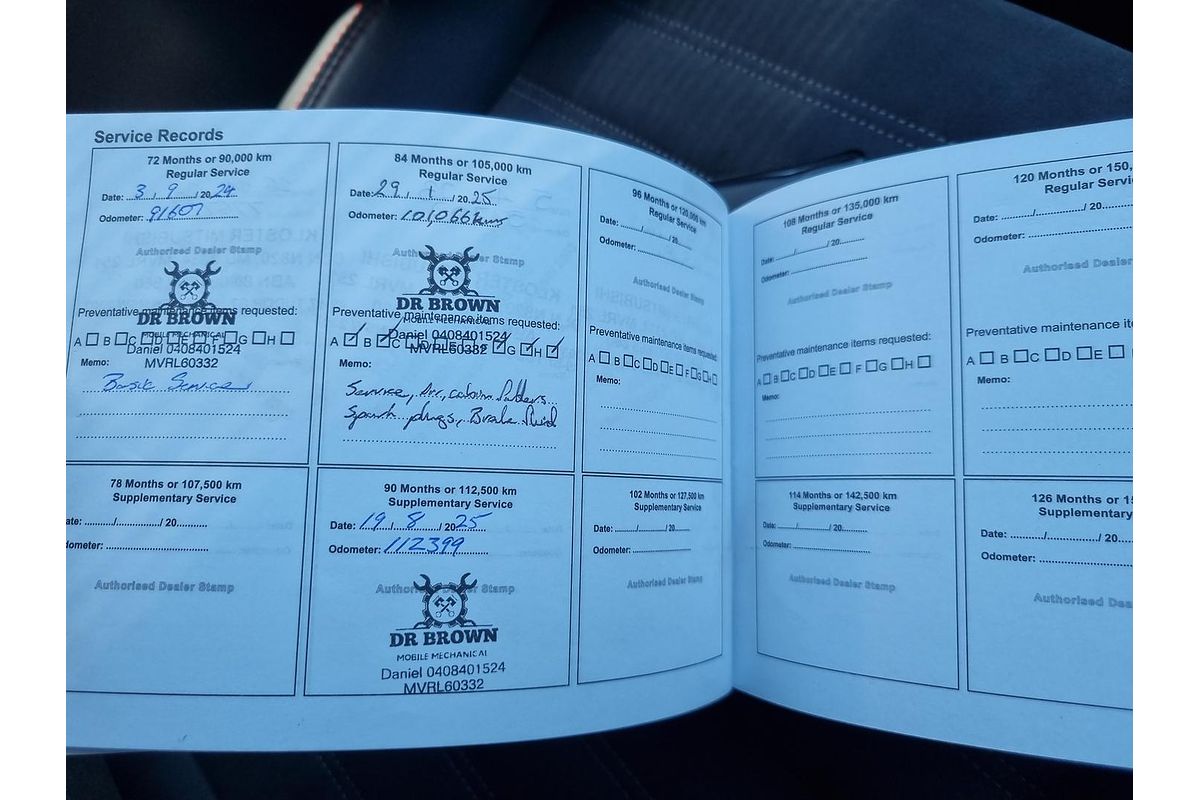 Service Records
72 Months or 90,000 km
Regular Service
Date: 3 / 9 / 2024
Odometer: 91607
Authorised Dealer Stamp
DR BROWN
Preventative maintenance items requested:
MOBILE MECHANICAL
A B C D E F G H
Daniel 0408401524
MVRL60332
Memo:
Basic Service
84 Months or 105,000 km
Regular Service
Date: 29 / 1 / 2025
Odometer: 101,066 kms
Authorised Dealer Stamp
DR BROWN
Preventative maintenance items requested:
MOBILE MECHANICAL
Daniel 0408401524
A B C D E F G H
MVRL60332
Memo:
Service, Air, cabin filters
Spark plugs, Brake fluid
96 Months or 120,000 km
Regular Service
Date: / / 20
Odometer:
Authorised Dealer Stamp
Preventative maintenance items requested
A B C D E F G H
Memo:
78 Months or 107,500 km
Supplementary Service
ate: / / 20
dometer:
Authorised Dealer Stamp
90 Months or 112,500 km
Supplementary Service
Date: 19 / 8 / 2025
Odometer: 112399
Authorised Dealer Stamp
DR BROWN
MOBILE MECHANICAL
Daniel 0408401524
MVRL60332
102 Months or 127,500 km
Supplementary Service
Date: / / 20
Odometer:
Authorised Dealer Stamp
108 Months or 135,000 km
Regular Service
Date: / / 20
Odometer:
Authorised Dealer Stamp
Preventative maintenance items requested:
A B C D E F G H
Memo:
120 Months or 150,
Regular Servi
Date: / / 20
Odometer:
Authorised Dealer
Preventative maintenance ite
A B C D E
Memo:
114 Months or 142,500 km
Supplementary Service
Date: / / 20
Odometer:
Authorised Dealer Stamp
126 Months or 15
Supplementary
Date: / / 20
Odometer:
Authorised Dea